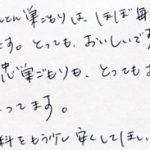 とん巣ごもりは、ほぼ毎
です。とっても、おいしいです
忠巣ごもりも、とっても
ってます。
料をもう少し安くしてほしい